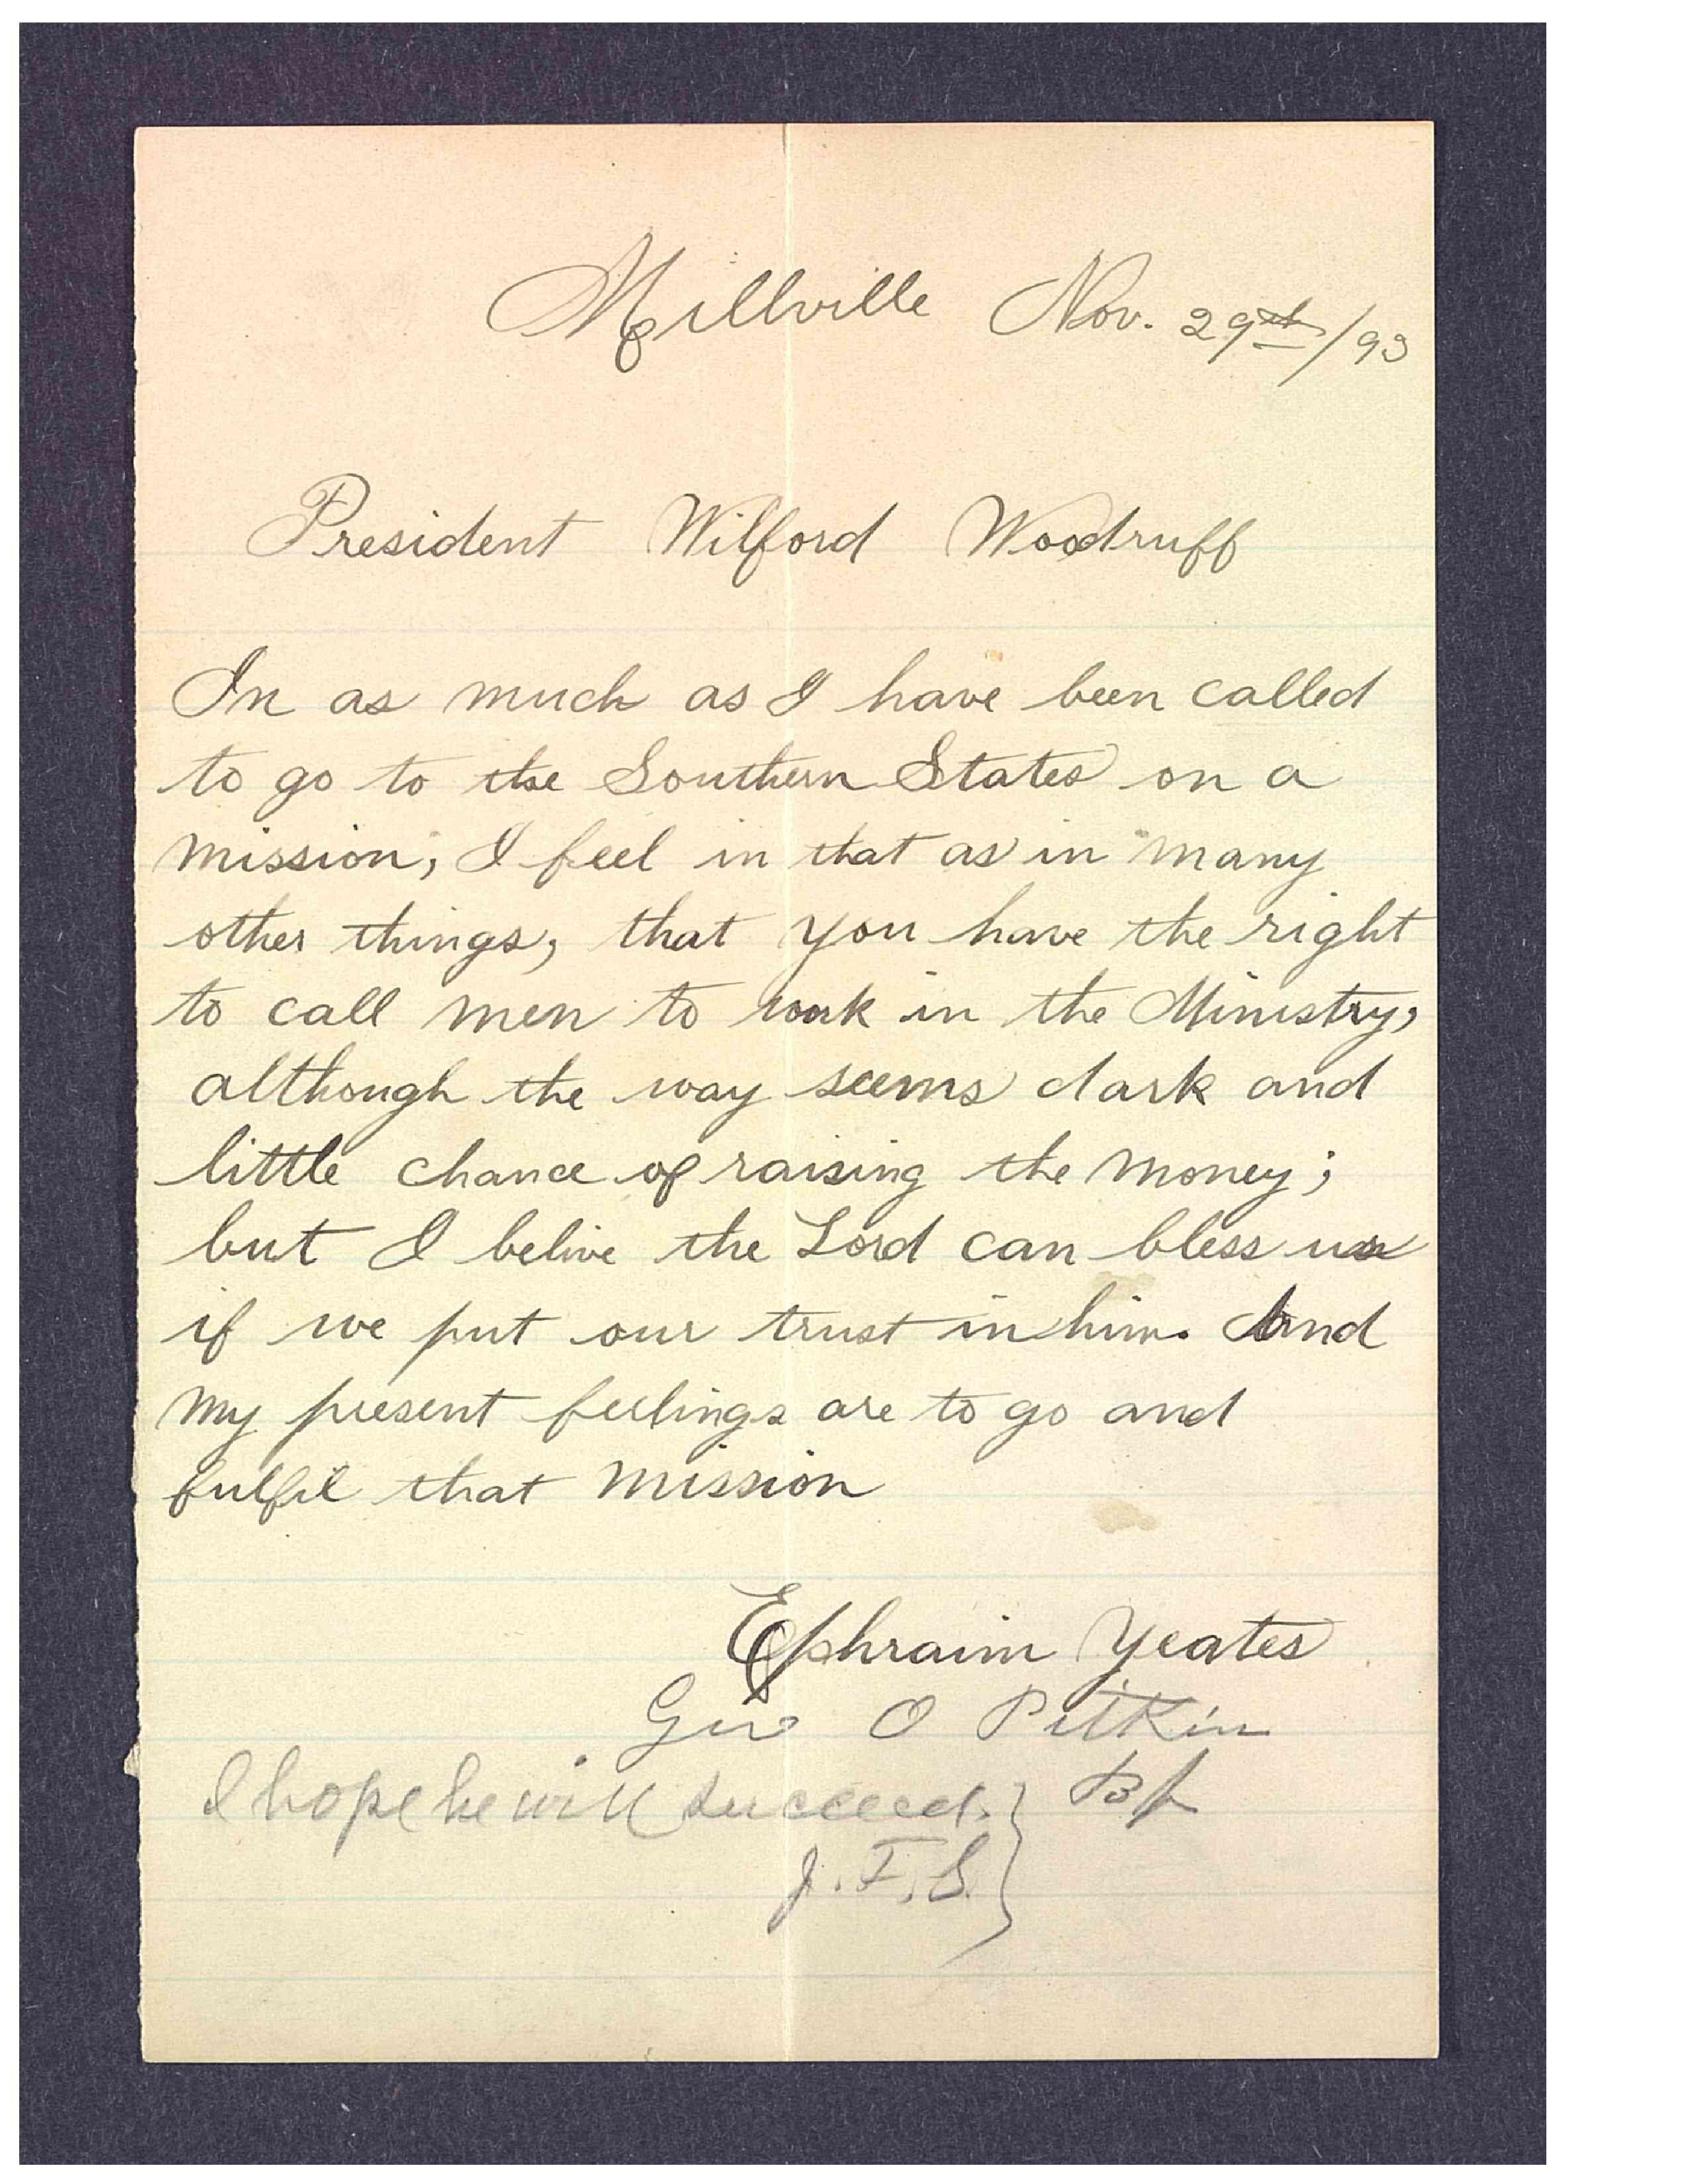 Millville Nov. 29th/93
President Wilford Woodruff
In as much as I have been called
to go to the Southern States on a
mission, I feel in that as in many
other things, that you have the right
to call men to work in the Ministry,
although the way seems dark and
little chance of raising the money;
but I belive the Lord can bless us
if we put our trust in him. And
my present feelings are to go and
fulfil that mission
Ephraim Yeates
Geo O Pitkin
I hope he will succeed. } Bp
J. F. S.